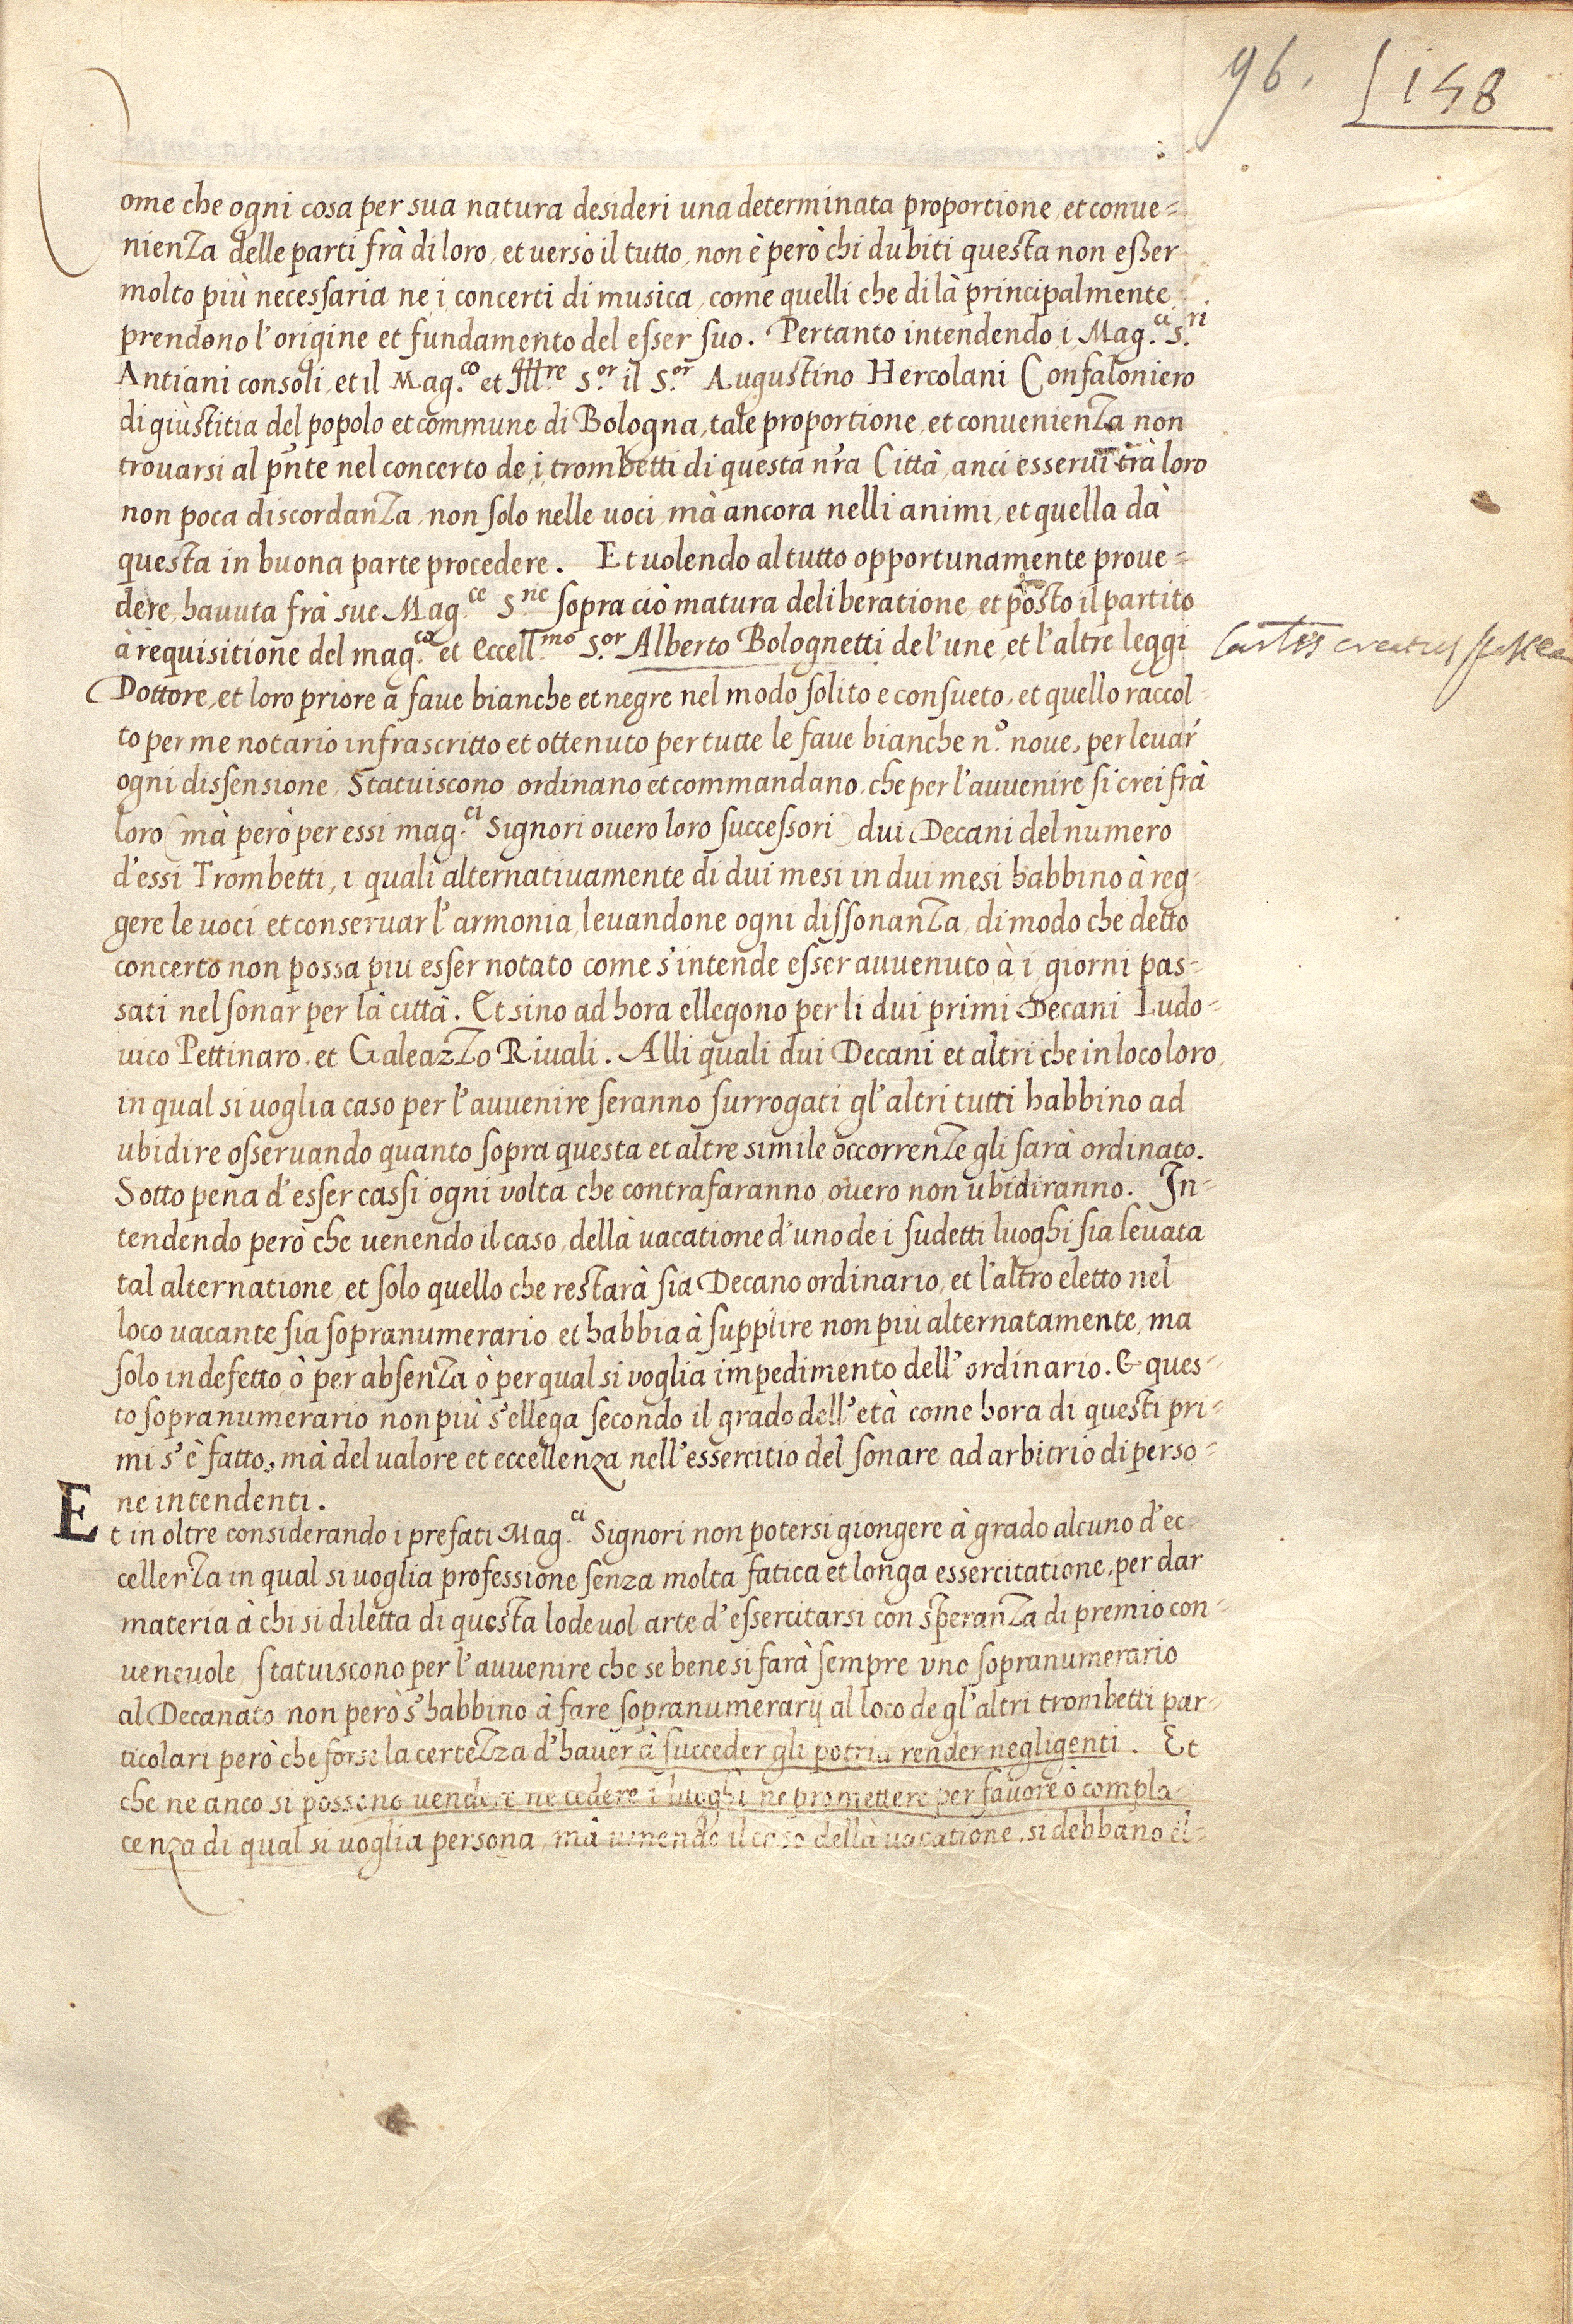 96. 158
Come che ogni cosa per sua natura desideri una determinata proportione, et conue=
nienza delle parti frà di loro, et verso il tutto, non è però chi dubiti questa non esser
molto più necessaria ne i concerti di musica, come quelli che di là principalmente
prendono l'origine et fundamento del esser suo. Pertanto intendendo i Mag.ci S.ri
Antiani consoli, et il Mag.co et Ill.re S.or il S.or Augustino Hercolani Confaloniero
di giustitia del popolo et commune di Bologna, tale proportione, et conuenienza non
trouarsi al pnte nel concerto de i trombetti di questa nra Città, anci esserui trà loro
non poca discordanza, non solo nelle uoci, mà ancora nelli animi, et quella dà
questa in buona parte procedere. Et uolendo al tutto opportunamente proue=
dere, hauuta frà sue Mag.ce S.rie sopra ciò matura deliberatione, et posto il partito
à requisitione del mag.co et Eccell.mo S.or Alberto Bolognetti de l'une, et l'altre leggi
Dottore, et loro priore à faue bianche et negre nel modo solito e consueto, et quello raccol=
to per me notario infrascritto et ottenuto per tutte le faue bianche n.o noue, per leuar
ogni dissensione, Statuiscono, ordinano et commandano, che per l'auuenire si crei frà
loro (mà però per essi mag.ci Signori ouero loro successori) dui Decani del numero
d'essi Trombetti, i quali alternatiuamente di dui mesi in dui mesi habbino à reg=
gere le uoci et conseruar l'armonia, leuandone ogni dissonanza, di modo che detto
concerto non possa piu esser notato come s'intende esser auuenuto à i giorni pas=
sati nel sonar per là città. Et sino ad hora ellegono per li dui primi Decani Ludo=
uico Pettinaro, et Galeazzo Riuali. Alli quali dui Decani et altri che in loco loro,
in qual si uoglia caso per l'auuenire seranno surrogati gl'altri tutti habbino ad
ubidire osseruando quanto sopra questa et altre simile occorrenze gli sarà ordinato.
Sotto pena d'esser cassi ogni volta che contrafaranno, ouero non ubidiranno. In=
tendendo però che uenendo il caso, dellà uacatione d'uno de i sudetti luoghi sia leuata
tal alternatione, et solo quello che restarà sia Decano ordinario, et l'altro eletto nel
loco uacante sia sopranumerario, et habbia à supplire non più alternatamente, ma
solo in defetto, ò per absenza ò per qual si voglia impedimento dell' ordinario. & ques=
to sopranumerario non più s'ellega secondo il grado dell'età come hora di questi pri=
mi s'è fatto, mà del ualore et eccellenza nell'essercitio del sonare ad arbitrio di perso=
ne intendenti.
Et in oltre considerando i prefati Mag.ci Signori non potersi giongere à grado alcuno d'ec=
cellenza in qual si uoglia professione senza molta fatica et longa essercitatione, per dar
materia à chi si diletta di questa lodeuol arte d'essercitarsi con speranza di premio con=
ueneuole, statuiscono per l'auuenire che se bene si farà sempre vno sopranumerario
al Decanato non però s'habbino à fare sopranumerarij al loco de gl'altri trombetti par=
ticolari però che forse la certezza d'hauer à succeder gli potria render negligenti. Et
che ne anco si possono uendere ne cedere i luoghi ne promettere per fauore ò compla=
cenza di qual si uoglia persona, mà uenendo il caso dellà uacatione, si debbano el=